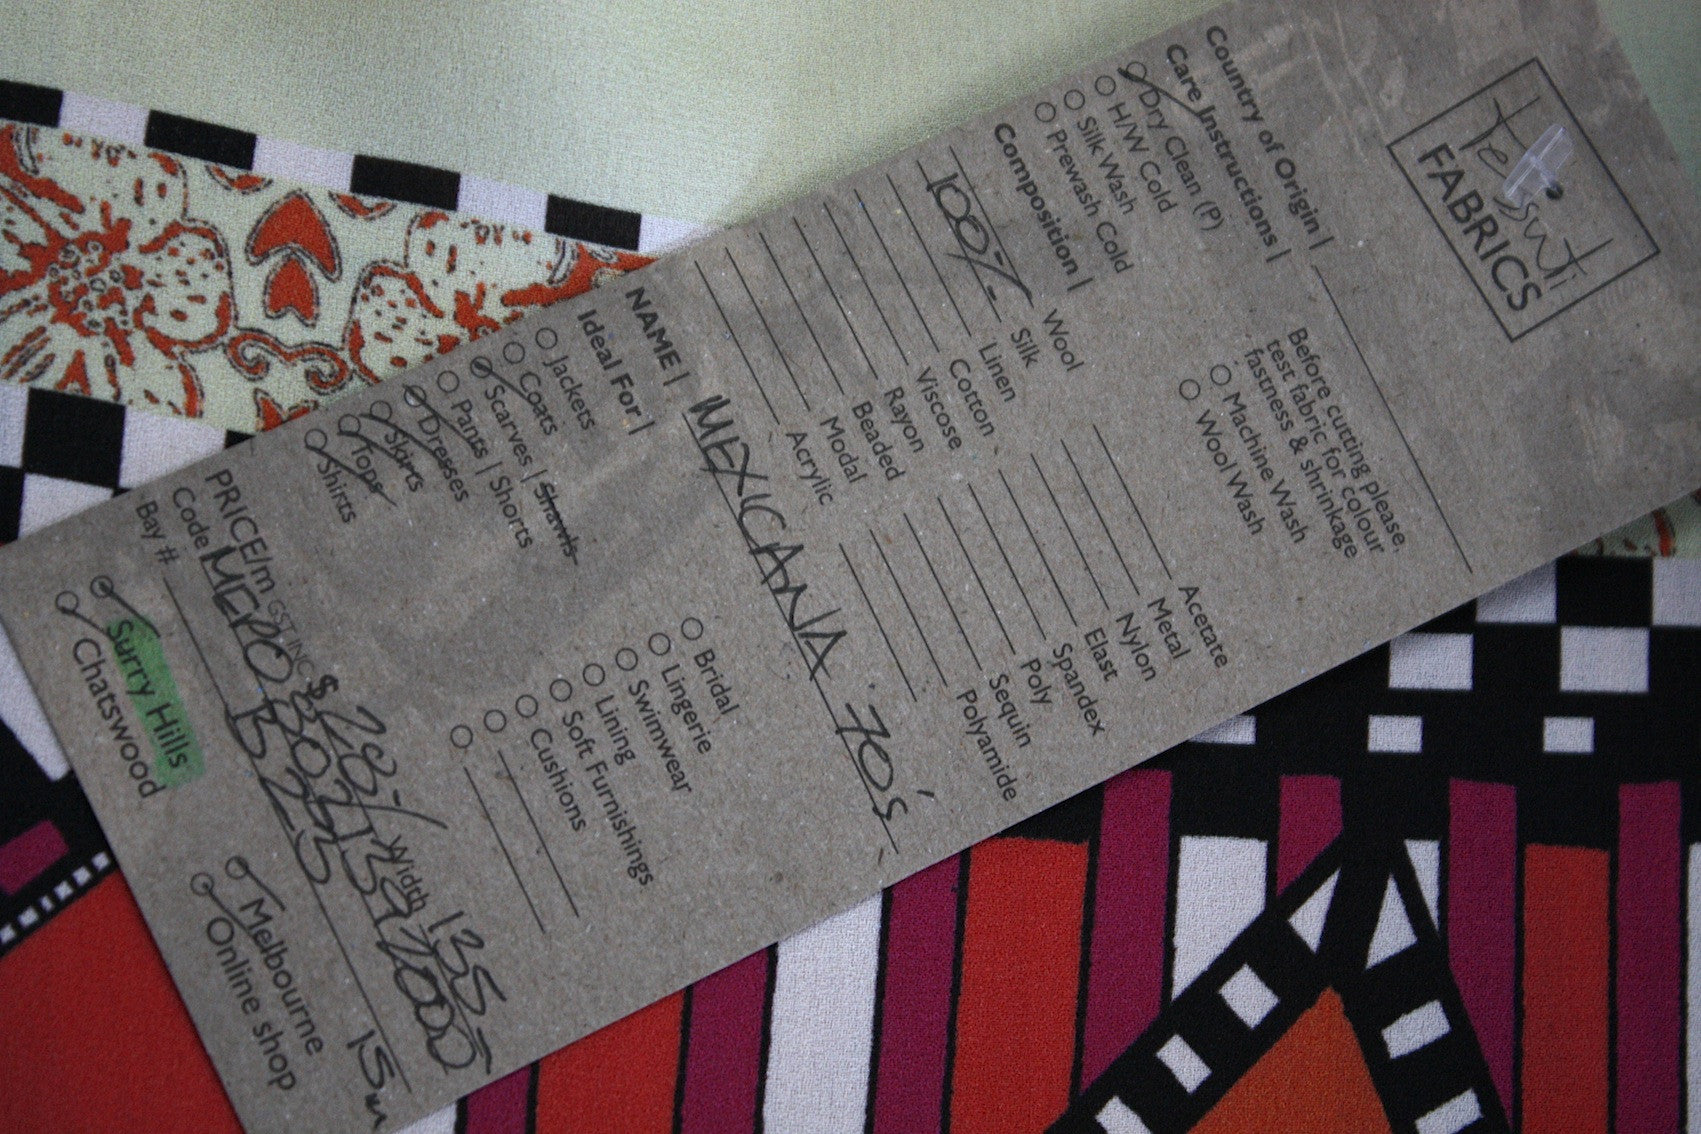 Tessuti
FABRICS
Country of Origin |
Care Instructions |
Dry Clean (P)
H/W Cold
Silk Wash
Prewash Cold
Before cutting please,
test fabric for colour
fastness & shrinkage
Machine Wash
Wool Wash
Composition |
Wool
100% Silk
Linen
Cotton
Viscose
Rayon
Beaded
Modal
Acrylic
Acetate
Metal
Nylon
Elast
Spandex
Poly
Sequin
Polyamide
NAME | MEXICANA 70's
Ideal For |
Jackets
Coats
Scarves | Shawls
Pants | Shorts
Dresses
Skirts
Tops
Shirts
Bridal
Lingerie
Swimwear
Lining
Soft Furnishings
Cushions
PRICE/m GST INC $ Width 135-
Code
Bay # B25 15m
Surry Hills
Chatswood
Melbourne
Online shop